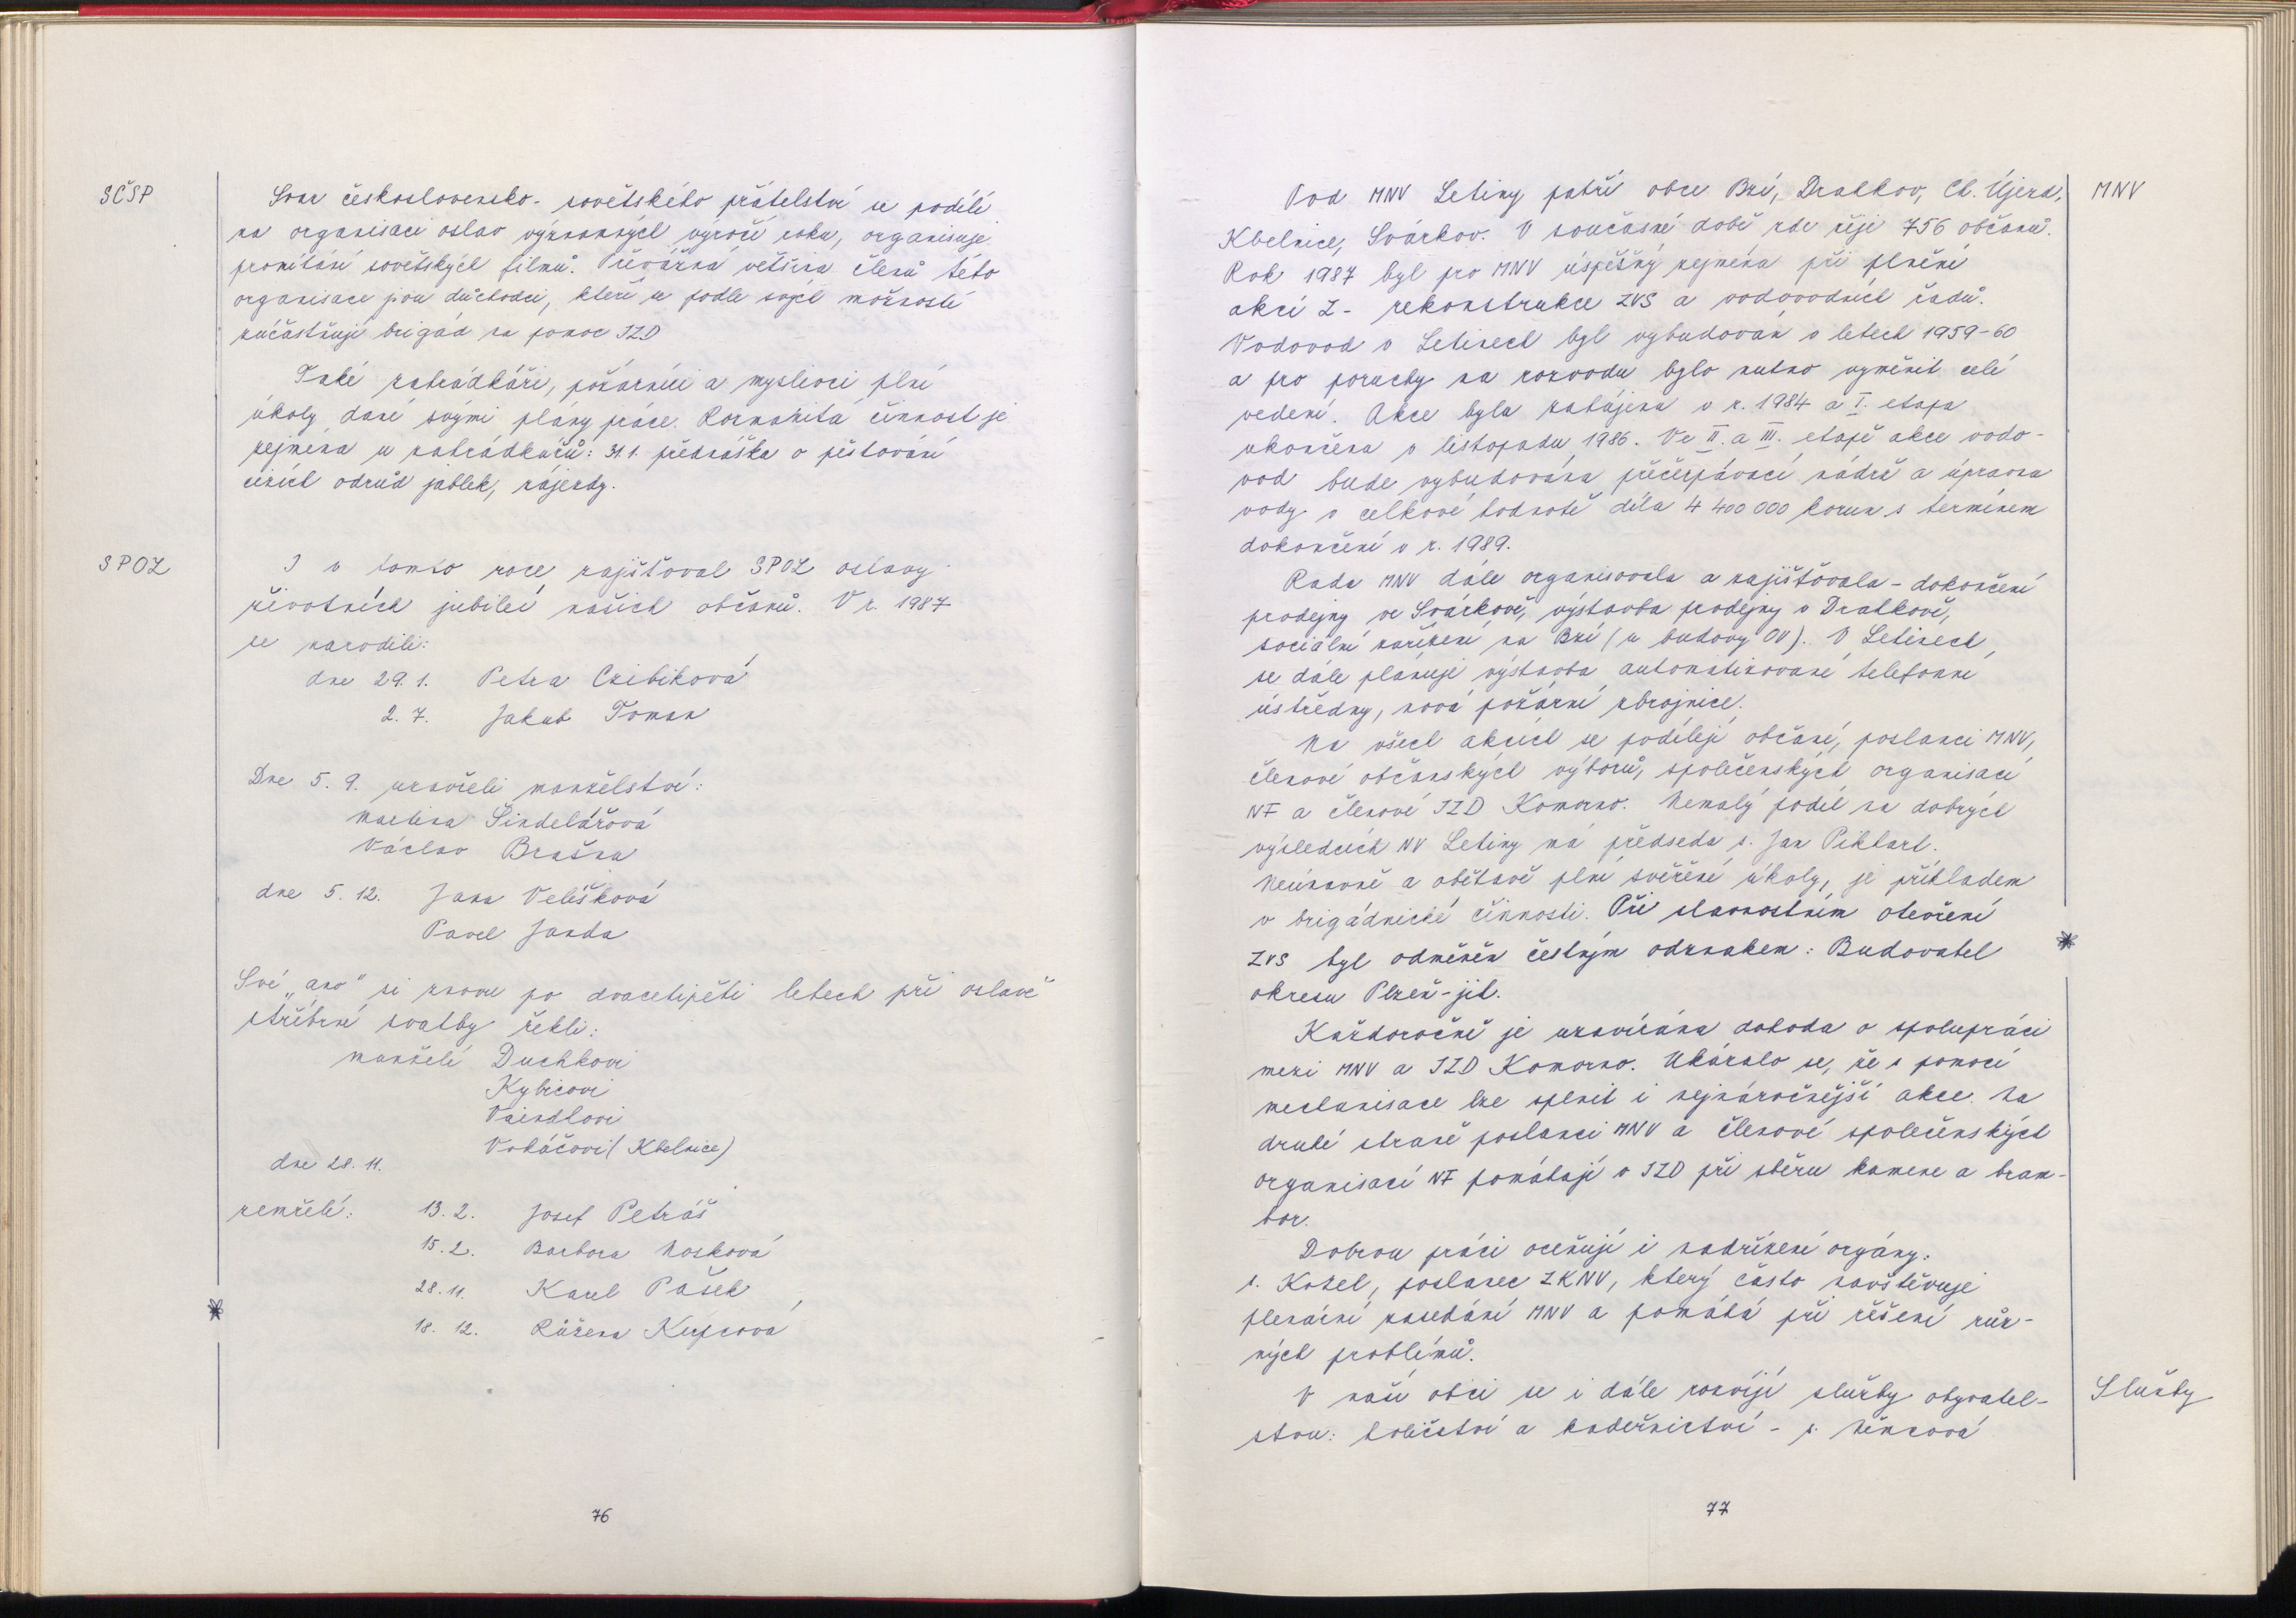 SČSP
Svaz československo-sovětského přátelství se podílí
na organisaci oslav významných výročí roku, organisuje
promítání sovětských filmů. Převážná většina členů této
organisace jsou důchodci, kteří se podle svých možností
zúčastňují brigád na pomoc JZD
Také zahrádkáři, požárníci a myslivci plní
úkoly dané svými plány práce. Rozmanitá činnost je
zejména u zahrádkářů: 31.1. přednáška o pěstování
cizích odrůd jablek, zájezdy.
SPOZ
I v tomto roce zajišťoval SPOZ oslavy
životních jubileí našich občanů. V r. 1987
se narodili:
dne 29. 1. Petra Czibiková
2. 7. Jakub Toman
Dne 5. 9. uzavřeli manželství:
Martina Šindelářová
Václav Brašna
dne 5. 12. Jana Velíšková
Pavel Janda
Své „ano" si znovu po dvacetipěti letech při oslavě
stříbrné svatby řekli:
manželé Duchkovi
Kybicovi
Vaindlovi
Vokáčovi (Kbelnice)
dne 28. 11.
zemřeli: 13. 2. Josef Petráš
15. 2. Barbora Nosková
28. 11. Karel Pašek
18. 12. Růžena Kupcová
76
Pod MNV Letiny patří obce Bzí, Drahkov, Ch. Újezd,
MNV
Kbelnice, Svárkov. V současné době zde žije 756 občanů.
Rok 1987 byl pro MNV úspěšný zejména při plnění
akcí Z - rekonstrukce ZVS a vodovodních řadů.
Vodovod v Letinech byl vybudován v letech 1959-60
a pro poruchy na rozvodu bylo nutno vyměnit celé
vedení. Akce byla zahájena v r. 1984 a I. etapa
ukončena v listopadu 1986. Ve II. a III. etapě akce vodo-
vod bude vybudována přečerpávací nádrž a úpravna
vody v celkové hodnotě díla 4 400 000 korun s termínem
dokončení v r. 1989.
Rada MNV dále organisovala a zajišťovala - dokončení
prodejny ve Svárkově, výstavba prodejny v Drahkově,
sociální zařízení na Bzí (u budovy OV). V Letinech
se dále plánuje výstavba automatizované telefonní
ústředny, nová požární zbrojnice.
Na všech akcích se podílejí občané, poslanci MNV,
členové občanských výborů, společenských organisací
NF a členové JZD Komorno. Nemalý podíl na dobrých
výsledcích NV Letiny má předseda s. Jan Pikhart.
Neúnavně a obětavě plní svěřené úkoly, je příkladem
v brigádnické činnosti. Při slavnostním otevření
ZVS byl odměněn čestným odznakem: Budovatel
okresu Plzeň-jih.
Každoročně je uzavírána dohoda o spolupráci
mezi MNV a JZD Komorno. Ukázalo se, že s pomocí
mechanisace lze splnit i nejnáročnější akce. Na
druhé straně poslanci MNV a členové společenských
organisací NF pomáhají v JZD při sběru kamene a bram-
bor.
Dobrou práci oceňují i nadřízené orgány:
s. Kozel, poslanec ZKNV, který často navštěvuje
plenární zasedání MNV a pomáhá při řešení růz-
ných problémů.
V naší obci se i dále rozvíjí služby obyvatel-
Služby
stvu: holičství a kadeřnictví - s. Němcová
77